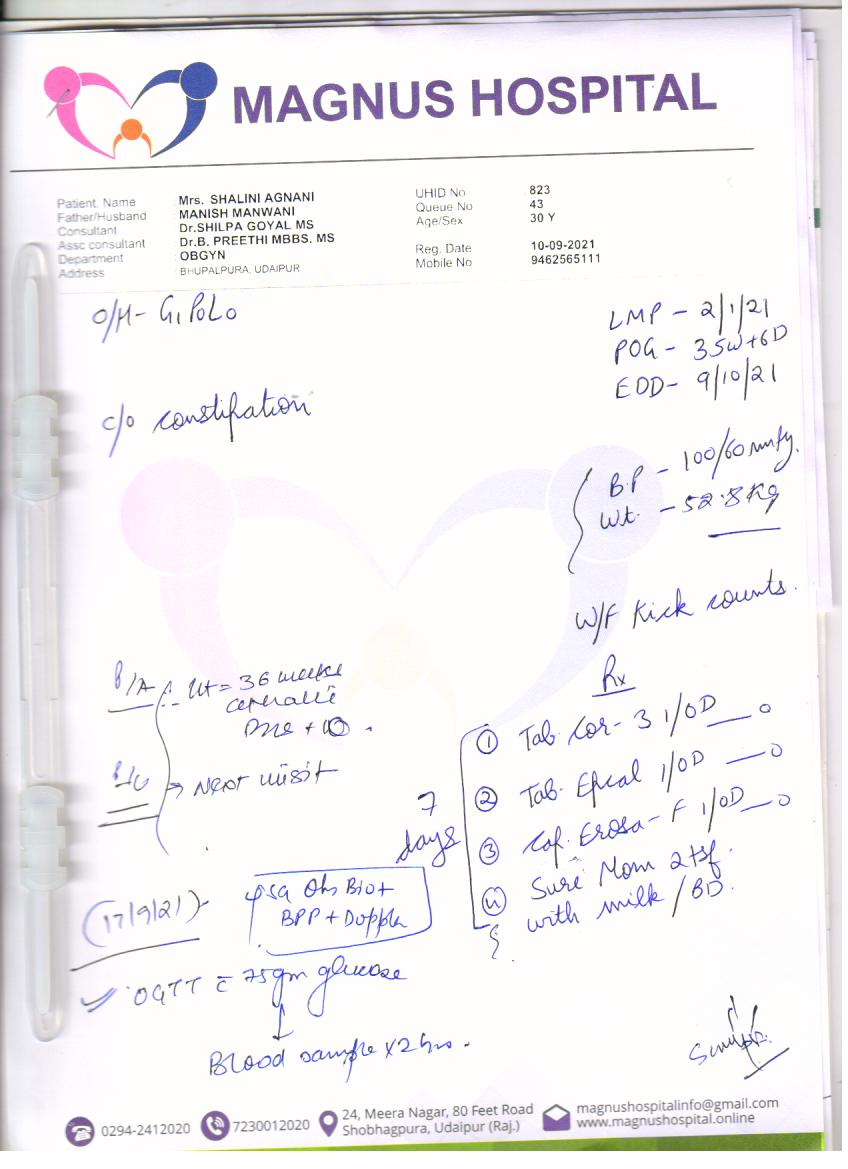 MAGNUS HOSPITAL
Patient. Name Mrs. SHALINI AGNANI
Father/Husband MANISH MANWANI
Consultant Dr.SHILPA GOYAL MS
Assc consultant Dr.B. PREETHI MBBS. MS
Department OBGYN
Address BHUPALPURA, UDAIPUR
UHID No 823
Queue No 43
Age/Sex 30 Y
Reg. Date 10-09-2021
Mobile No 9462565111
O/H- G1P0L0
LMP - 2/1/21
POG - 35W+6D
EDD- 9/10/21
c/o constipation
B.P - 100/60 mmHg.
Wt. - 52.8 Kg
W/F Kick counts.
P/A Ut = 36 weeks
cephalic
→ Next visit
Rx
① Tab. Cor-3 1/OD
② Tab. Epcal 1/OD
③ Cap. Erosa-F 1/OD
④ Sure Mom 2 tsf.
with milk /BD.
7
days
(17/9/21)-
BPP + Doppler
OGTT c̄ 75gm glucose
↓
Blood sample x 2 hrs.
0294-2412020
7230012020
24, Meera Nagar, 80 Feet Road
Shobhagpura, Udaipur (Raj.)
magnushospitalinfo@gmail.com
www.magnushospital.online